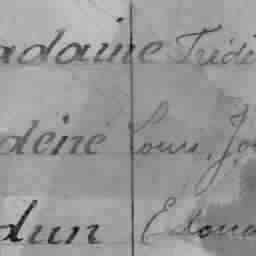 adaine Frédé
déné Louis, Jo
dun Edoua